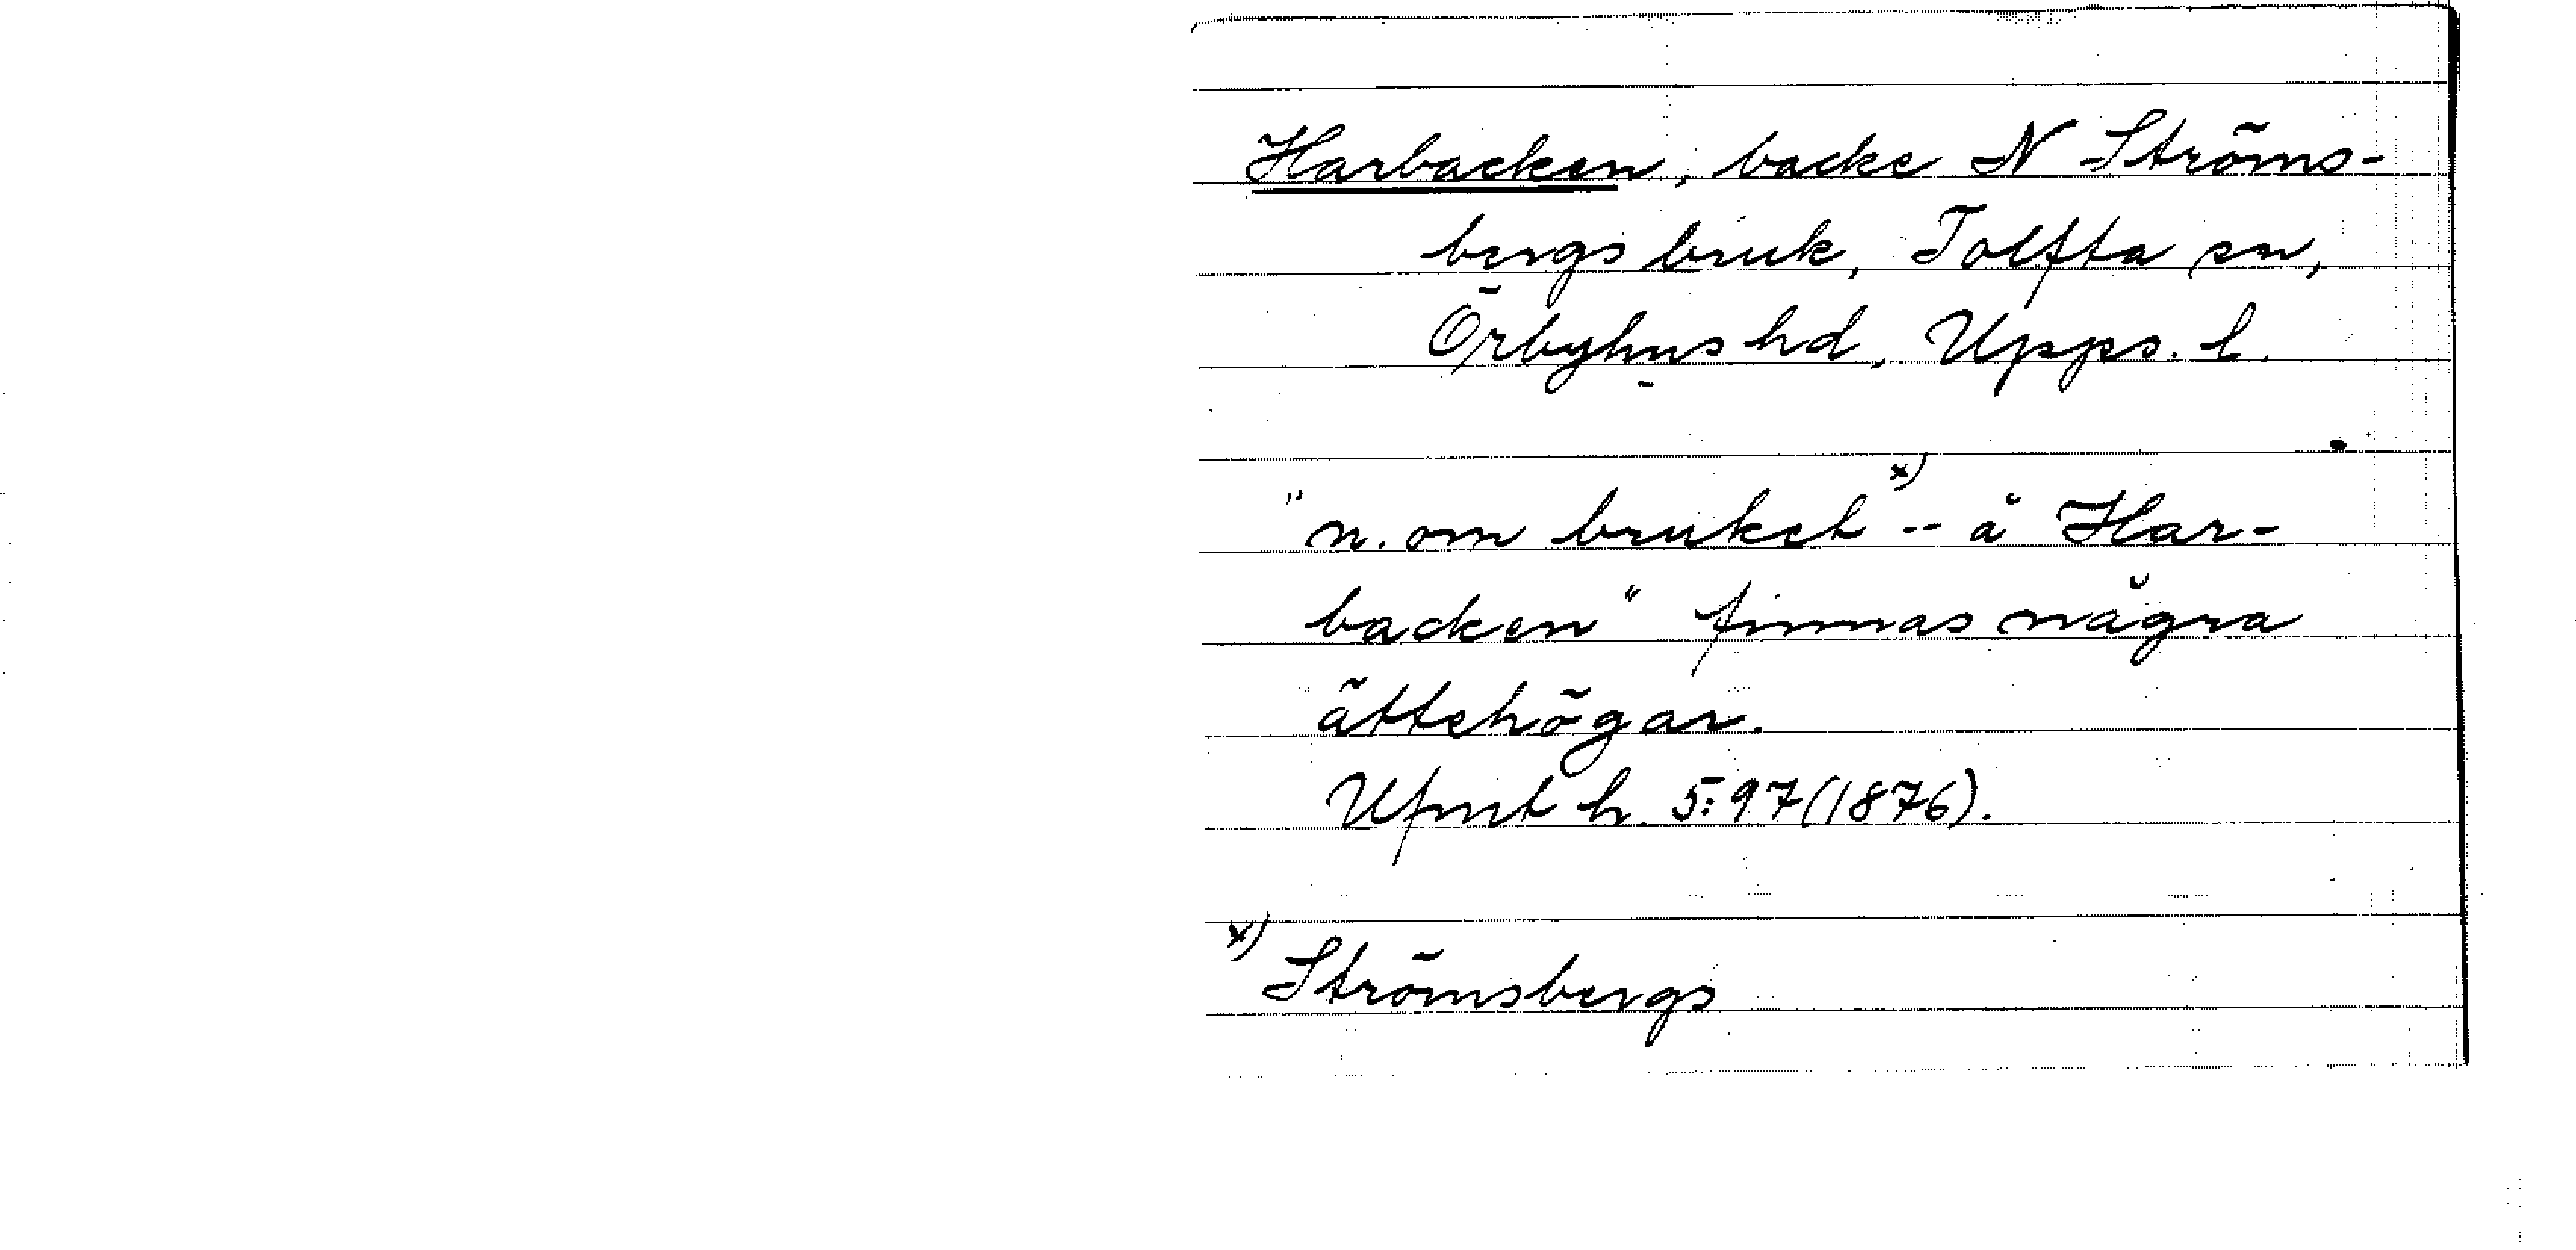 Harbacken, backe N Ströms-
bergs bruk, Tolfta sn,
Örbyhus hd, Upps. l.
x)
"n. om bruket -- å Har-
backen" finnas några
ättehögar.
Ufmt h. 5:97(1876).
x) Strömsbergs